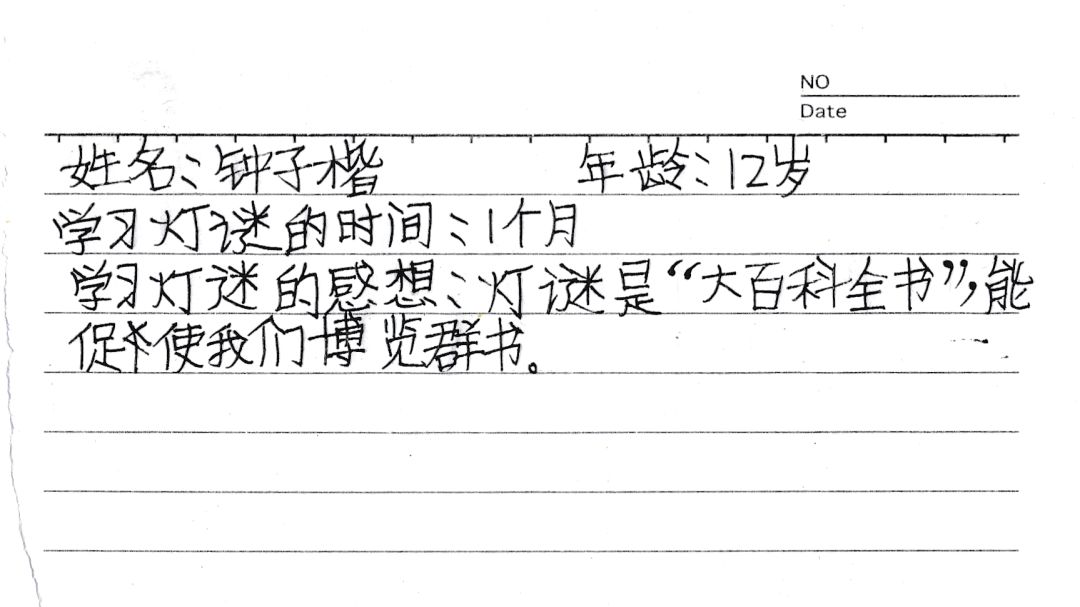 NO
Date
姓名：钟子楷 年龄：12岁
学习灯谜的时间：1个月
学习灯谜的感想：灯谜是“大百科全书”，能
促使我们博览群书。